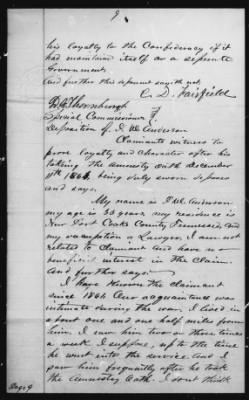 9
his loyalty to the Confederacy if it
had maintained itself as a seperate
Government
And further this deponent sayeth not.
C. D. Fairfield
Thornburgh
Special Commissioner
Deposition of J. W. Anderson
Claimants witness to
prove loyalty and character after his
taking the amnesty oath December
11th 1864, being duly sworn deposes
and says.
My name is J W Anderson
my age is 33 years my residence is
New Port Cocke County Tennessee, and
my occupation a Lawyer, I am not
related to claimant and have no
beneficial interest in the claim.
And further says:
I have known the claimant
since 1860 Our acquaintance was
intimate during the war. I lived in
about one and one half miles from
him. I saw him two or three times
a week I suppose, up to the time
he went into the service and I
saw him frequently after he took
the Amnesty Oath. I dont think
Page 9